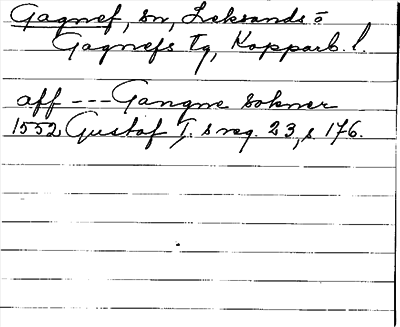 Gagnef, sn, Leksands o
Gagnefs tg, Kopparb. l.
aff --- Gangne sokner
1552 Gustaf I:s reg. 23, s. 176.